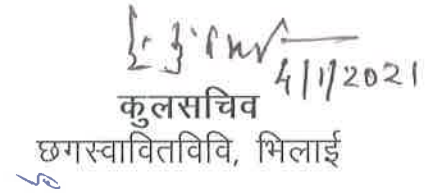 4/1/2021
कुलसचिव
छगस्वावितविवि, भिलाई